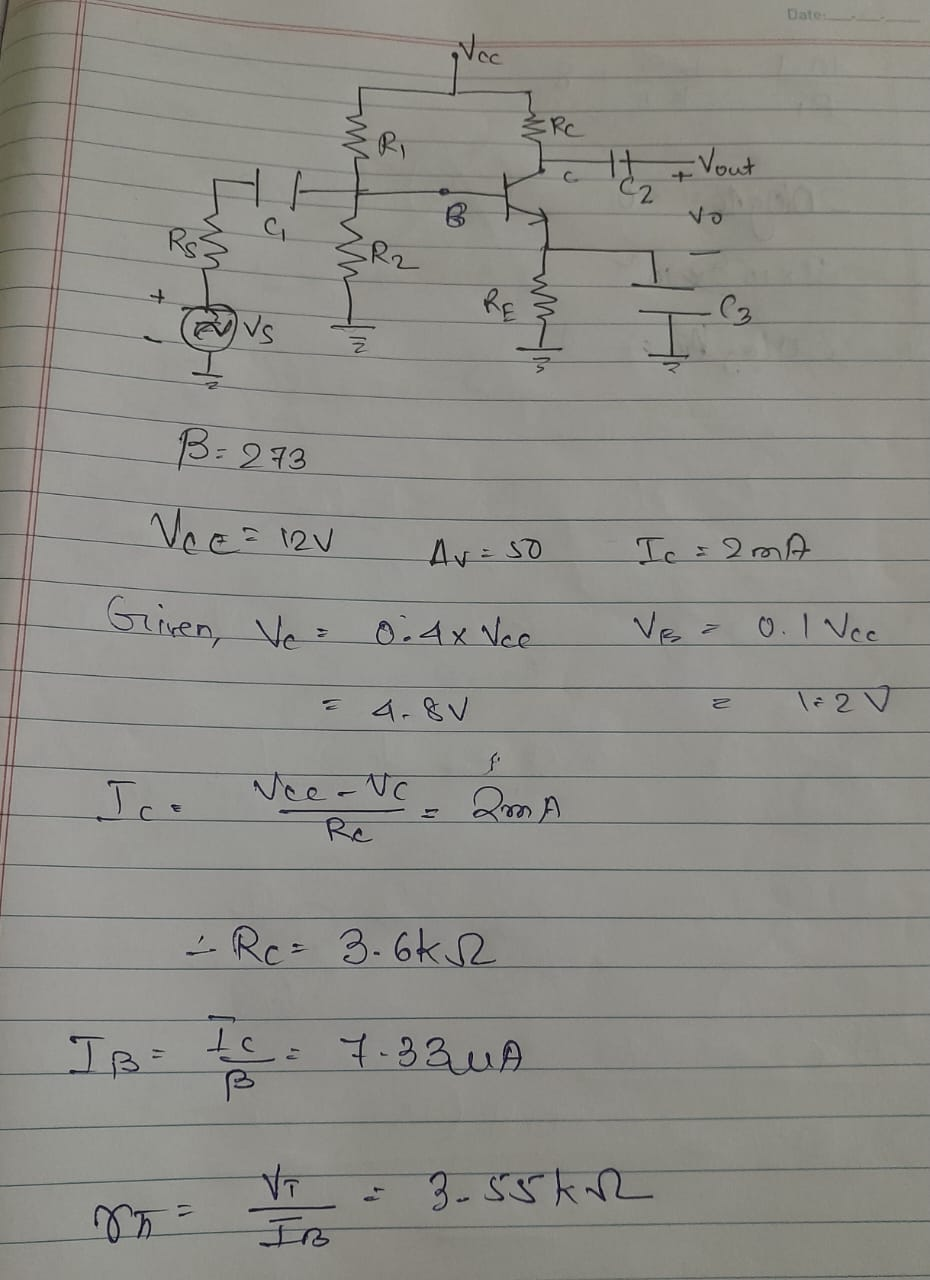 Date:
Vcc
R1
RC
C
C2
+ Vout
Vo
-
C1
B
RS
R2
RE
C3
+
-
VS
β = 273
VCE = 12V AV = 50 IC = 2mA
Given, VC = 0.4 x Vcc VB = 0.1 Vcc
= 4.8V = 1.2V
IC = Vcc - VC / RC = 2mA
∴ RC = 3.6kΩ
IB = IC / β = 7.33uA
rπ = VT / IB = 3.55kΩ